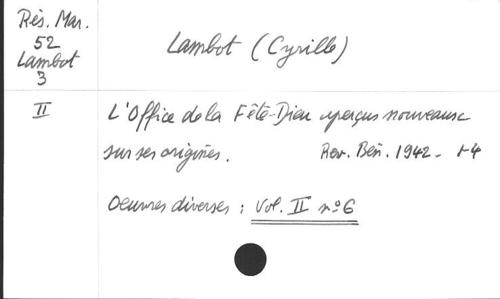 Rès. Mar.
52
Lambot
3
Lambot (Cyrille)
II
L'Office de la Fête-Dieu aperçus nouveaux
sur ses origines. Rev. Bén. 1942 - 1-4
Oeuvres diverses : Vol. II nº 6